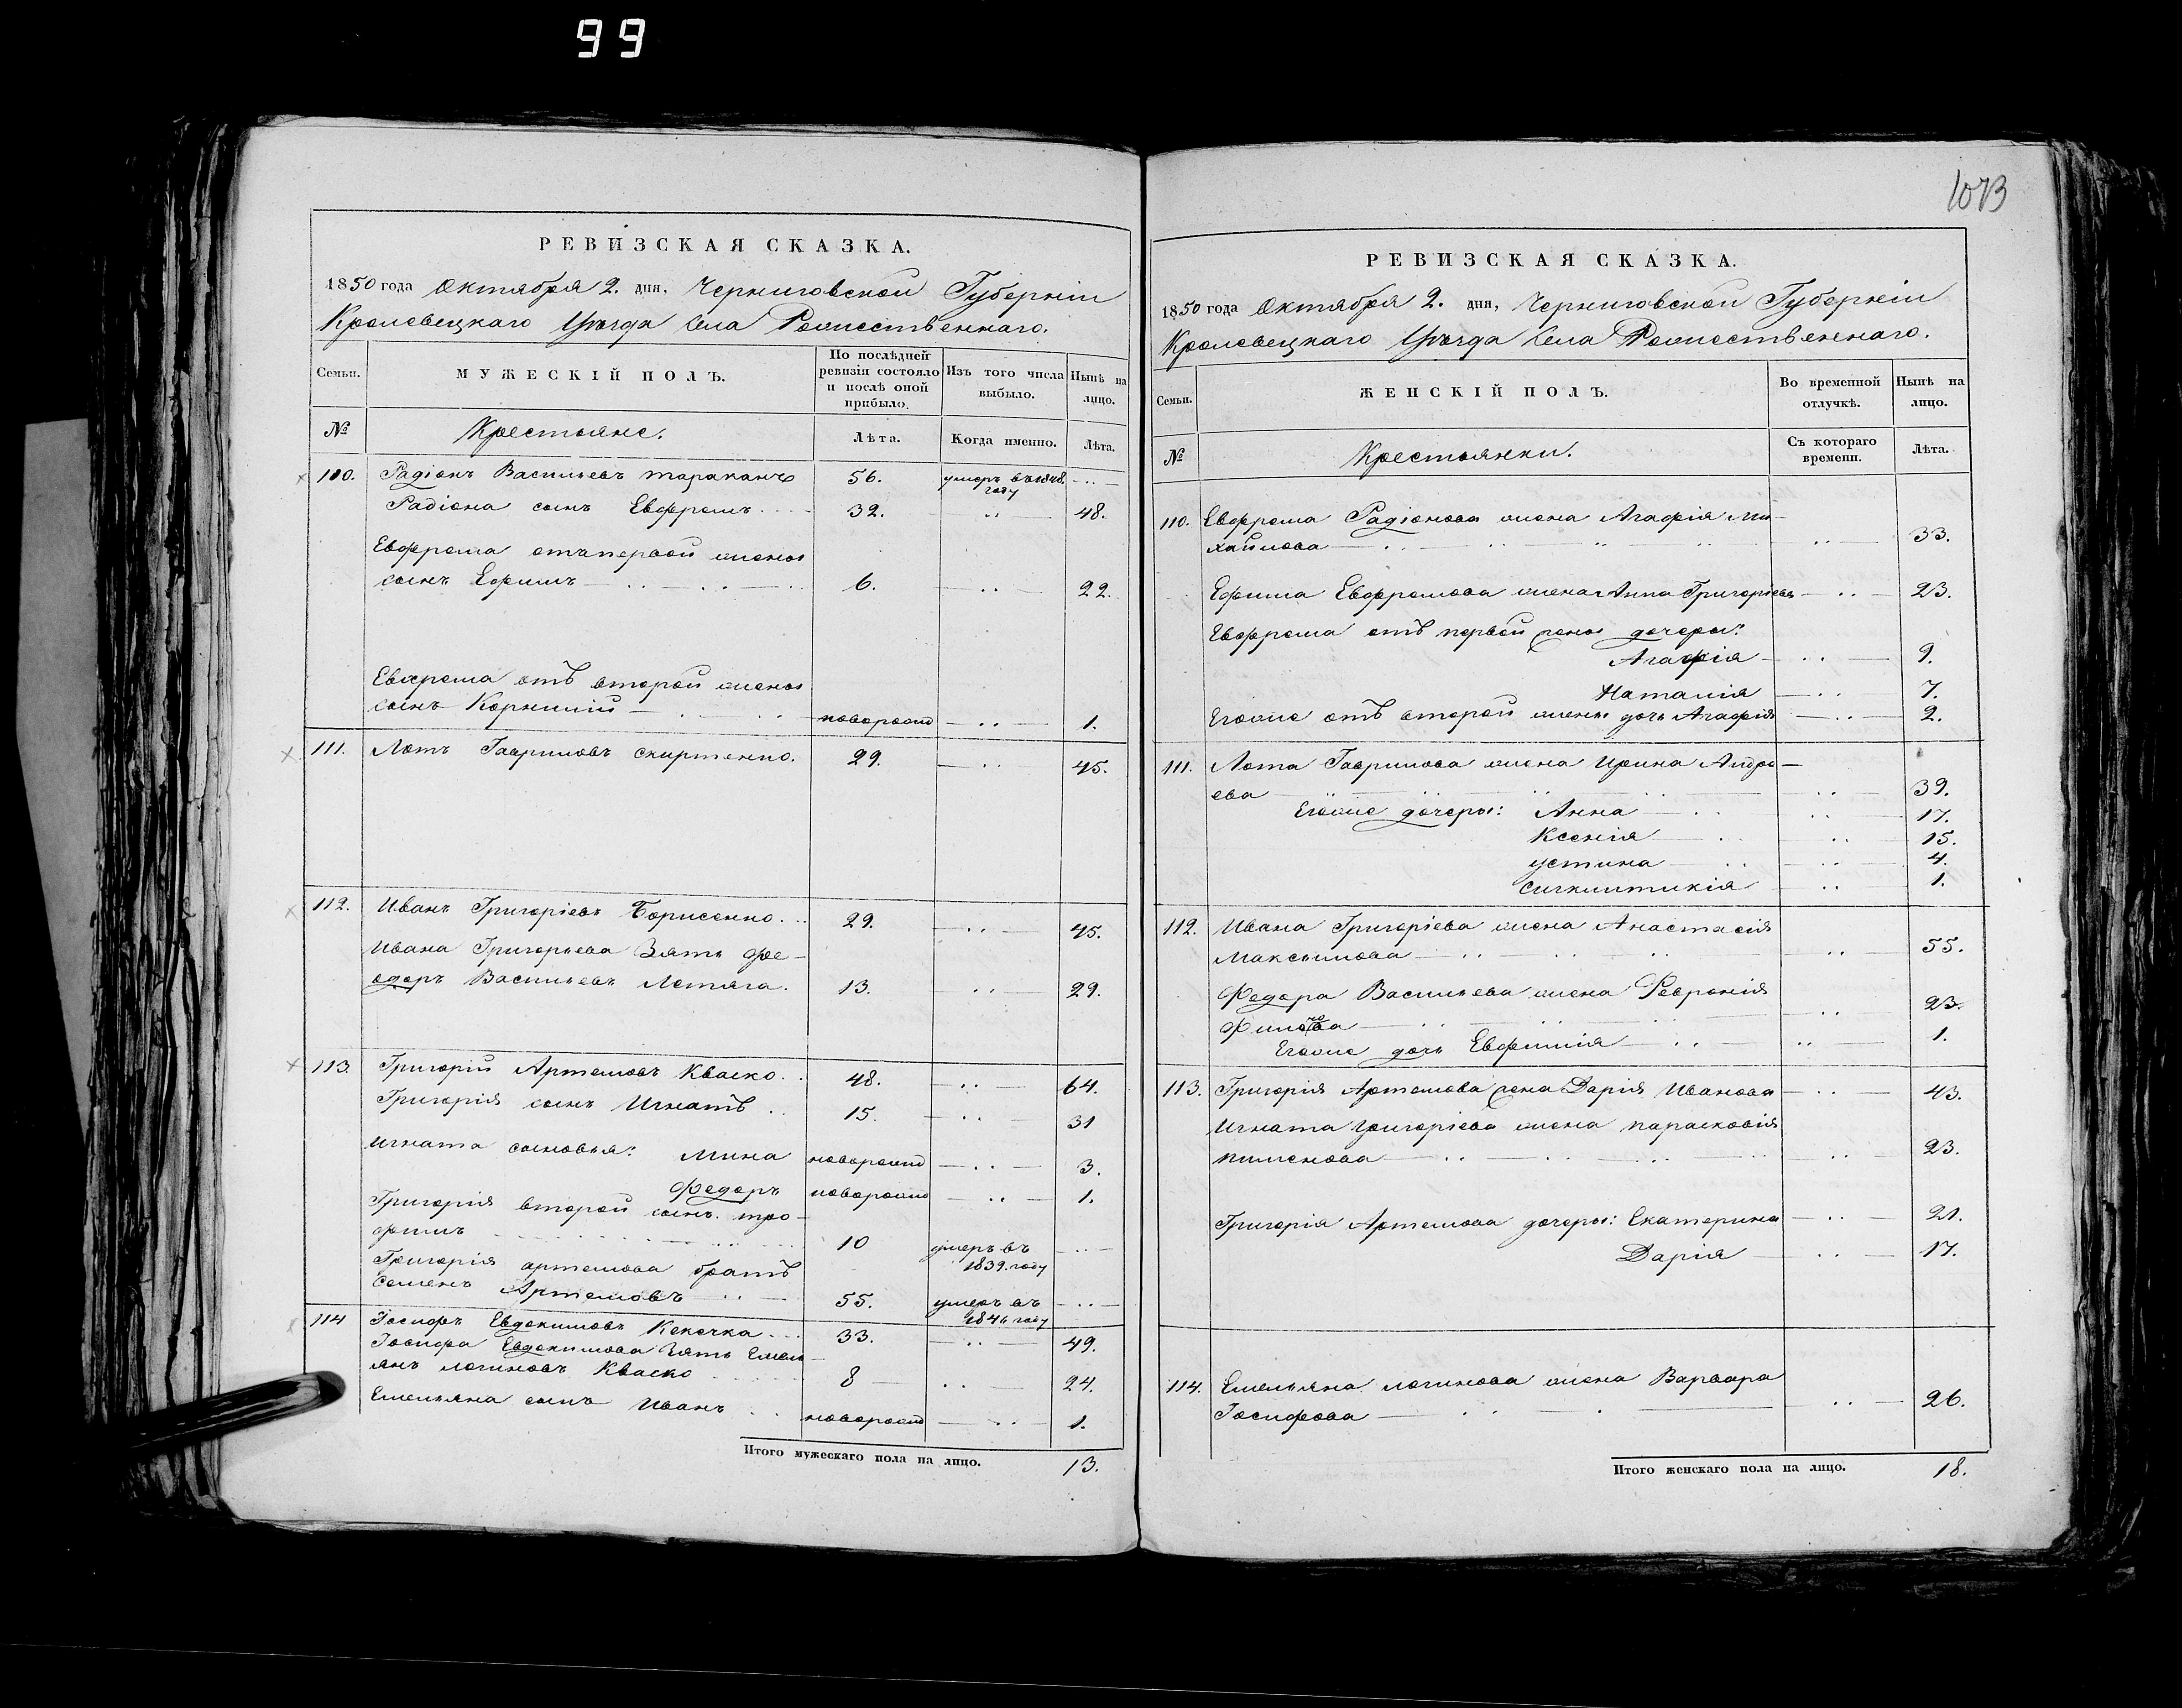 99
1073
РЕВИЗСКАЯ СКАЗКА.
1850 года Октября 2. дня, Черниговской Губерніи
Кролевецкаго Уѣзда Села Рожественнаго.
Семьи. МУЖЕСКІЙ ПОЛЪ. По послѣдней ревизіи состояло и послѣ оной прибыло. Изъ того числа выбыло. Нынѣ на лицо.
№ Крестьяне. Лѣта. Когда именно. Лѣта.
110. Радіонъ Васильевъ Тараканъ 56. умеръ въ 1848 году
Радіона сынъ Евфромъ 32. 48.
Евфрома отъ первой жены
сынъ Ефимъ 6. 22.
Евфрома отъ второй жены
сынъ Корнилій новорожд 1.
111. Лотъ Гавриловъ Скиртенко. 29. 45.
112. Иванъ Григоріевъ Борисенко. 29. 45.
Ивана Григорьева Зять Фе-
одоръ Васильевъ Летяга. 13. 29.
113. Григорій Артемовъ Кваско. 48. 64.
Григорія сынъ Игнатъ 15. 31
Игната сыновья: Мина новорожд 3.
Федоръ новорожд 1.
Григорія второй сынъ Тро-
фимъ 10 умеръ въ 1839. году
Григорія Артемова братъ
Семенъ Артемовъ 55. умеръ въ 1846 году
114 Іосифъ Евдокимовъ Кекечка 33. 49.
Іосифа Евдокимова Зять Емель
янъ Логиновъ Кваско 8 24.
Емельяна сынъ Иванъ новорожд 1.
Итого мужескаго пола на лицо. 13.
РЕВИЗСКАЯ СКАЗКА.
1850 года Октября 2. дня, Черниговской Губерніи
Кролевецкаго Уѣзда Села Рожественнаго.
Семьи. ЖЕНСКІЙ ПОЛЪ. Во временной отлучкѣ. Нынѣ на лицо.
№ Крестьянки. Съ котораго времени. Лѣта.
110. Евфрома Радіонова жена Агафія Ми-
хайлова 33.
Ефима Евфромова жена Анна Григоріева 23.
Евфрома отъ первой жены дочеры:
Агафія 9.
Наталія 7.
Егоже отъ второй жены дочь Агафія 2.
111. Лота Гаврилова жена Ирина Андре-
ева 39.
Егоже дочеры: Анна 17.
Ксенія 15.
Устина 4.
1.
112. Ивана Григоріева жена Анастасія
Максимова 55.
Федора Васильева жена Февронія
23.
Егоже дочь Евфимія 1.
113. Григорія Артемова жена Дарія Иванова 43.
Игната Григоріева жена Парасковія
Пименова 23.
Григорія Артемова дочеры: Екатерина 21.
Дарія 17.
114. Емельяна Логинова жена Варвара
Іосифова 26.
Итого женскаго пола на лицо. 18.